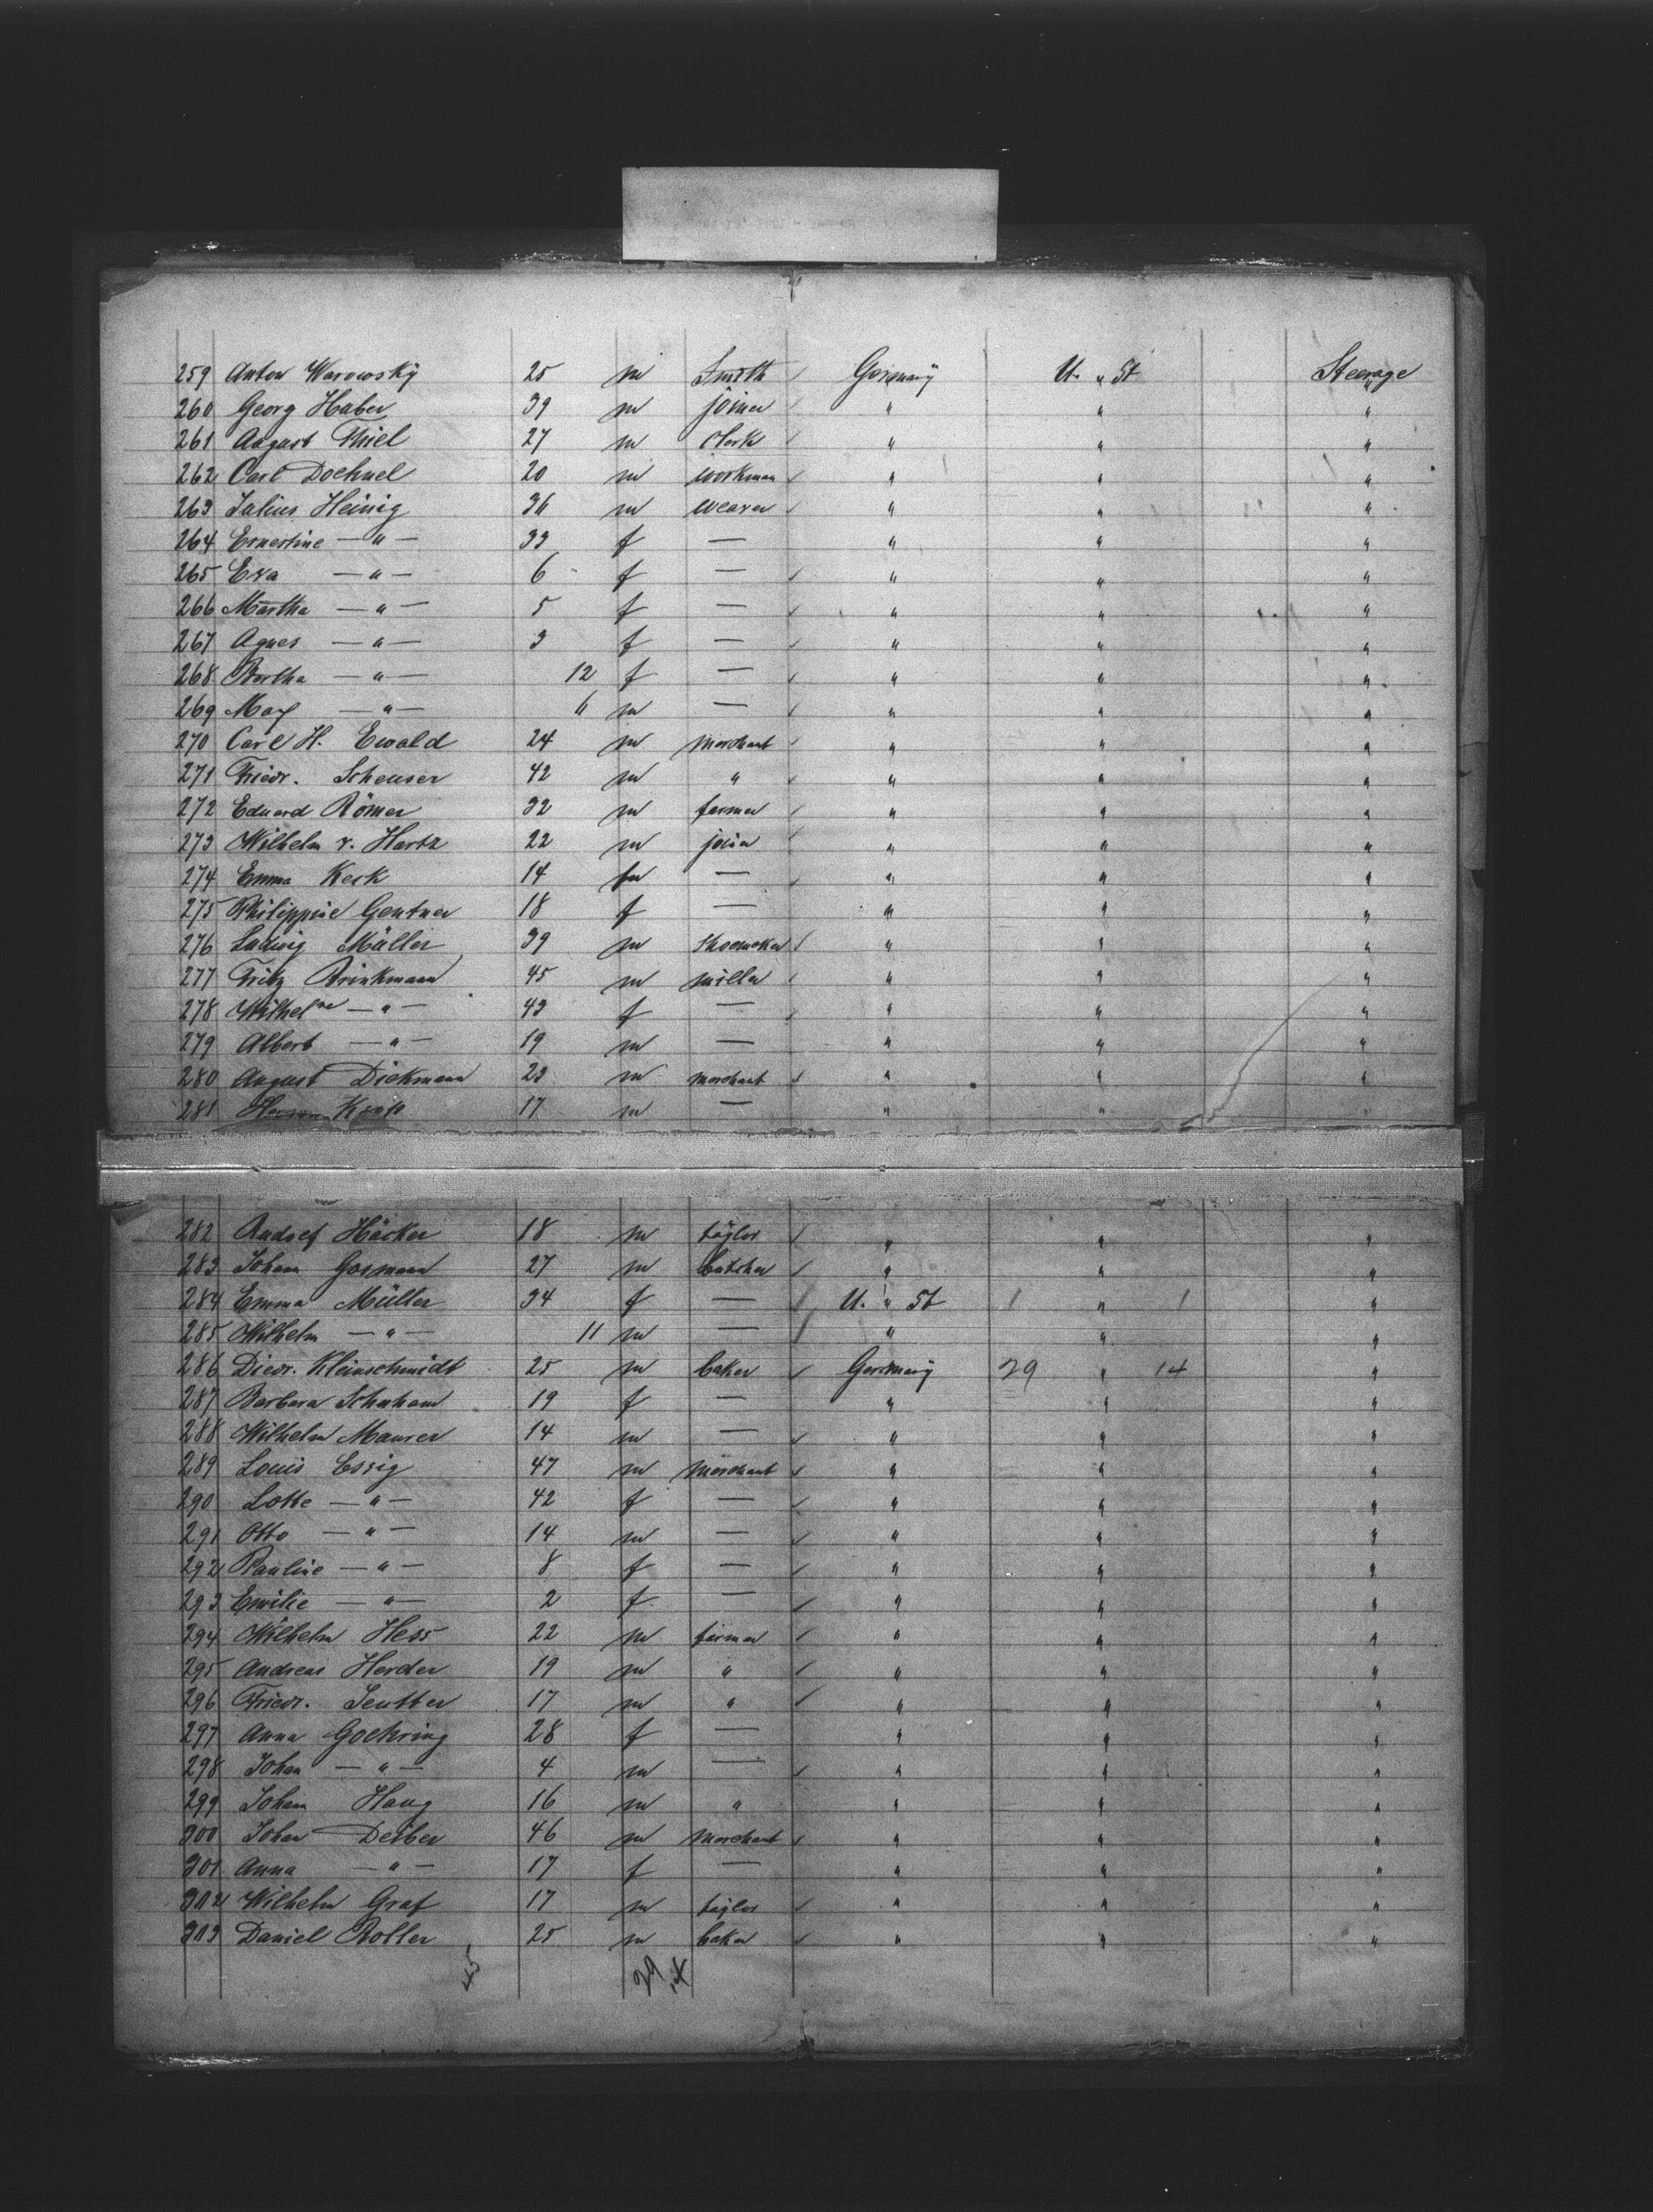 259 Anton Warowsky 25 m Smith Germany U. " St Steerage
260 Georg Haber 39 m joiner " " "
261 August Thiel 27 m Clerk " " "
262 Carl Doehnel 20 m workman " " "
263 Julius Heinig 36 m weaver " " "
264 Ernestine — " — 33 f — " " "
265 Eva — " — 6 f — " " "
266 Martha — " — 5 f — " " "
267 Agnes — " — 3 f — " " "
268 Bertha — " — 12 f — " " "
269 Max — " — m — " " "
270 Carl H. Ewald 24 m merchant " " "
271 Friedr. Scheuser 42 m " " " "
272 Eduard Römer 32 m farmer " " "
273 Wilhelm v. Hartz 22 m joiner " " "
274 Emma Keck 14 — " " "
275 Philippine Gentner 18 f — " " "
276 Ludwig Müller 39 m shoemaker " " "
277 Fritz Brinkmann 45 m miller " " "
278 Wilhelne — " — 43 f — " " "
279 Albert — " — 19 m — " " "
280 August Diekmann 23 m merchant " " "
281 17 m — " " "
282 Häcker 18 m taylor " " "
283 Johann Gosmann 27 m butcher " " "
284 Emma Müller 34 f — U. " St 1 " 1 "
285 Wilhelm — " — 11 m — " " "
286 Diedr. Kleinschmidt 25 m baker Germany 29 " 14 "
287 Barbara 19 f — " " "
288 Wilhelm Maurer 14 m — " " "
289 Louis Essig 47 m merchant " " "
290 Lotte — " — 42 f — " " "
291 Otto — " — 14 m — " " "
292 Pauline — " — 8 f — " " "
293 Emilie — " — 2 f — " " "
294 Wilhelm Hess 22 m farmer " " "
295 Andreas Herder 19 m " " " "
296 Friedr. Seutter 17 m " " " "
297 Anna Goehring 28 f — " " "
298 Johan — " — 4 m — " " "
299 Johann Haug 16 m " " " "
300 Johan Deiber 46 m merchant " " "
301 Anna — " — 17 f — " " "
302 Wilhelm Graf 17 m taylor " " "
303 Daniel Roller 25 m baker " " "
45 29 14